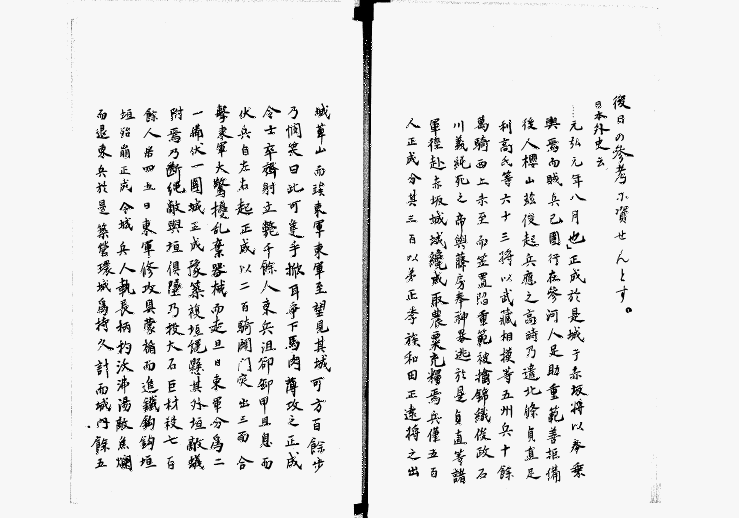 後日の參考ニ資せんとす。
日本外史云
元弘元年八月也正成於是城于赤坂將以奉乘
輿焉而賊兵已圍行在參河人足助重範善拒備
後人櫻山茲俊起兵應之高時乃遣北條貞直足
利高氏等六十三將以武藏相模等五州兵十餘
萬騎西上未至而笠置陷重範被擒錦織俊政石
川義純死之帝與藤房奉神器逃於是貞直等諸
軍徑赴赤坂城城纔成取農粟充糧焉兵僅五百
人正成分其三百以弟正季族和田正遠將之出
城草山而竢東軍東軍至望見其城可方百餘步
乃憫笑曰此可隻手掀耳爭下馬肉薄攻之正成
令士卒齊射立斃千餘人東兵沮卻卸甲且息而
伏兵自左右起正成以二百騎開門突出三面合
擊東軍大驚擾亂棄器械而走旦日東軍分爲二
一備伏一圍城正成豫築複垣使懸其外垣敵蟻
附焉乃斷繩敵與垣俱墮乃投大石巨材殺七百
餘人居四五日東軍修攻具蒙楯而進鐵鉤鉤垣
垣殆崩正成令城兵人執長柄杓沃沸湯敵焦爛
而退東兵於是築營環城爲持久計而城內餘五